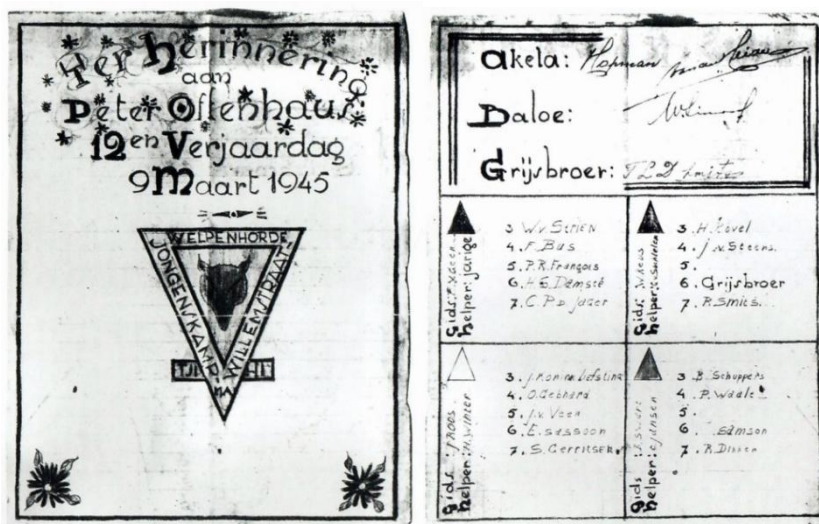 Ter herinnering
aan
Peter Ostenhaus'
12 en Verjaardag
9 Maart 1945
WELPENHORDE
JONGENSKAMP
WILLEMSTRAAT
akela: Hopman
Baloe:
Grijsbroer: J L D Smits
gids:
helper: jarige
3 W.v
4. F. Bus
5. P.R. François
6. H.E. Damsté
7. C. P.D. Jager
gids:
helper:
3. H.
4. J.v. Steens.
5.
6. Grijsbroer
7. R. Smits.
gids: J Roos
helper: H. Winter
3. J. Koning Liefsting
4. O. Gebhard
5. J.v. Veen
6. E. Sassoon
7. S. Gerritsen
gids
helper: Jansen
3 B. Schuppers
4 P. Waale
5.
6 Samson
7. R.